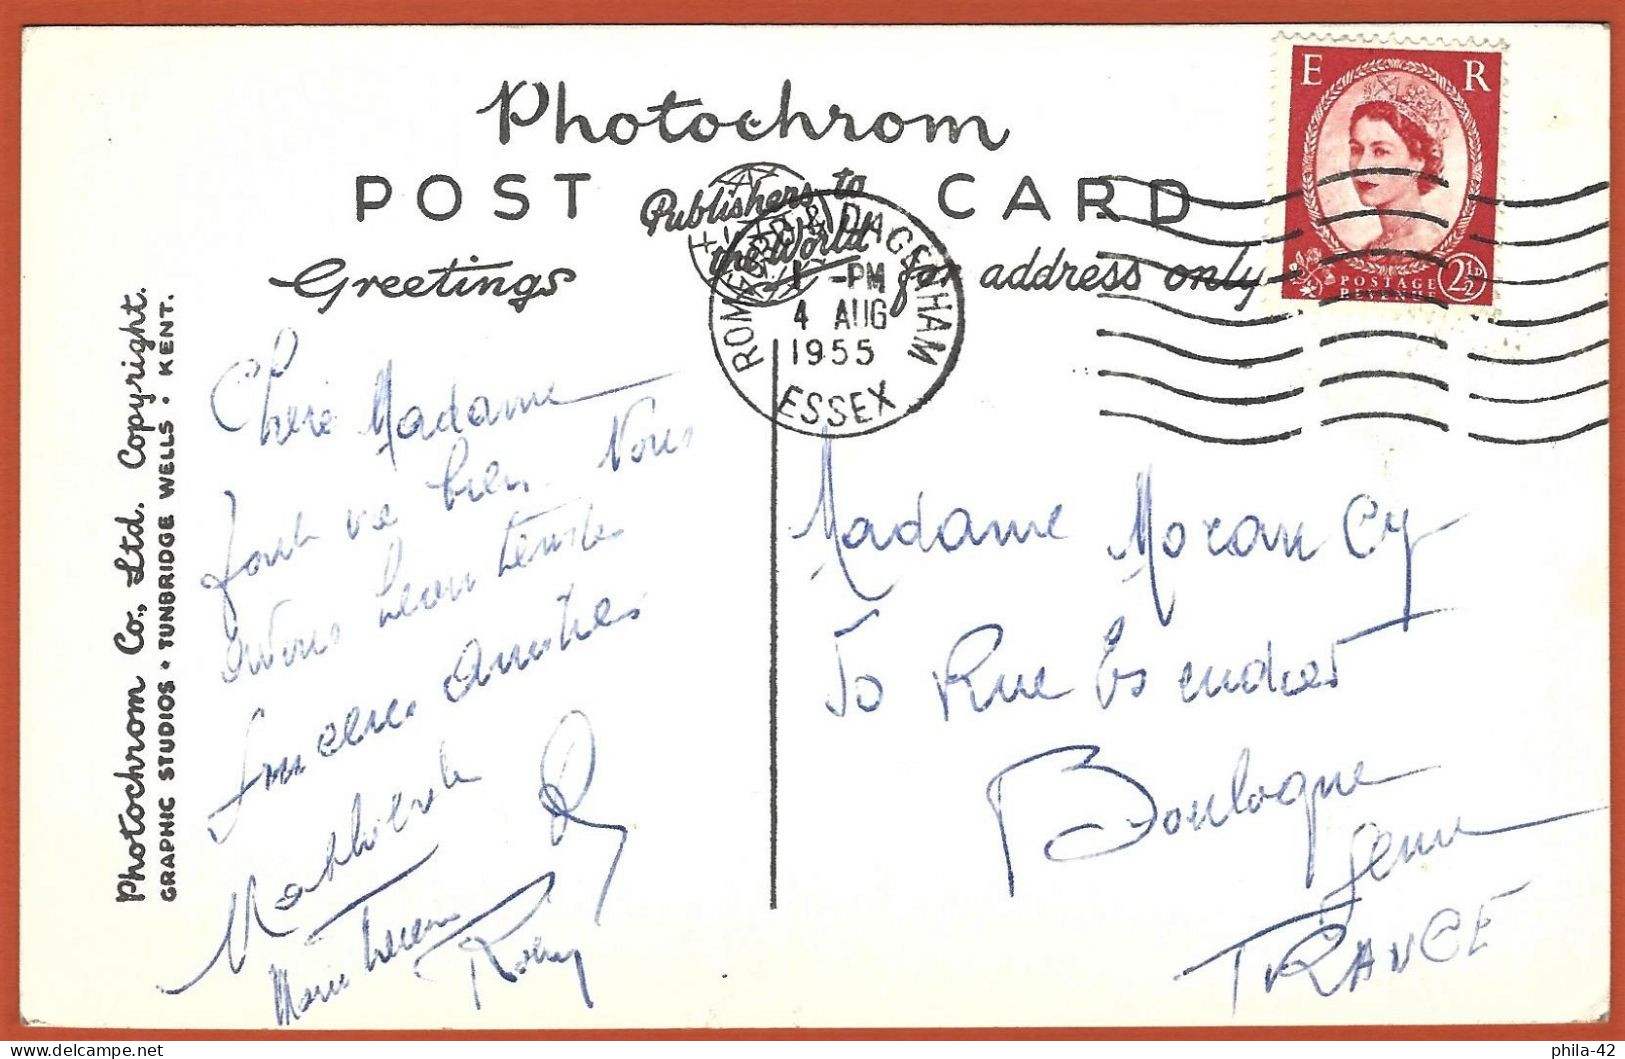 Photochrom
POST CARD
Publishers to
the World
Greetings
for address only
E R
POSTAGE
REVENUE
2½D
ROMFORD & DAGENHAM
1 -PM
4 AUG
1955
ESSEX
Photochrom Co., Ltd. Copyright.
GRAPHIC STUDIOS · TUNBRIDGE WELLS · KENT.
Chère Madame
tout va bien Nous
avons beau temps
sincères amitiés
Marie Therese
Madame Morancy
50 Rue
Boulogne
Seine
FRANCE
phila-42